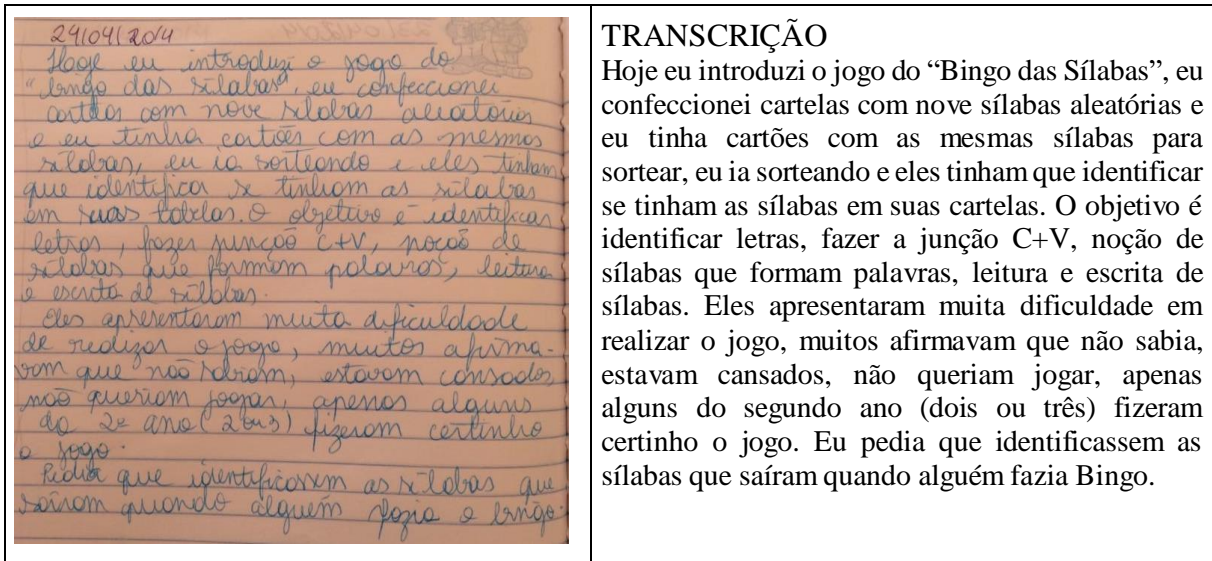 24/04/2014
Hoje eu introduzi o jogo do
"bingo das sílabas", eu confeccionei
cartelas com nove sílabas aleatórias
e eu tinha cartões com as mesmas
sílabas, eu ia sorteando e eles tinham
que identificar se tinham as sílabas
em suas tabelas. O objetivo é identificar
letras, fazer junção C+V, noção de
sílabas que formam palavras, leitura
e escrita de sílabas.
Eles apresentaram muita dificuldade
de realizar o jogo, muitos afirma-
vam que não sabiam, estavam cansados
não queriam jogar, apenas alguns
do 2º ano (2 ou 3) fizeram certinho
o jogo.
Pedia que identificassem as sílabas que
saíram quando alguém fazia o bingo.
TRANSCRIÇÃO
Hoje eu introduzi o jogo do “Bingo das Sílabas”, eu
confeccionei cartelas com nove sílabas aleatórias e
eu tinha cartões com as mesmas sílabas para
sortear, eu ia sorteando e eles tinham que identificar
se tinham as sílabas em suas cartelas. O objetivo é
identificar letras, fazer a junção C+V, noção de
sílabas que formam palavras, leitura e escrita de
sílabas. Eles apresentaram muita dificuldade em
realizar o jogo, muitos afirmavam que não sabia,
estavam cansados, não queriam jogar, apenas
alguns do segundo ano (dois ou três) fizeram
certinho o jogo. Eu pedia que identificassem as
sílabas que saíram quando alguém fazia Bingo.